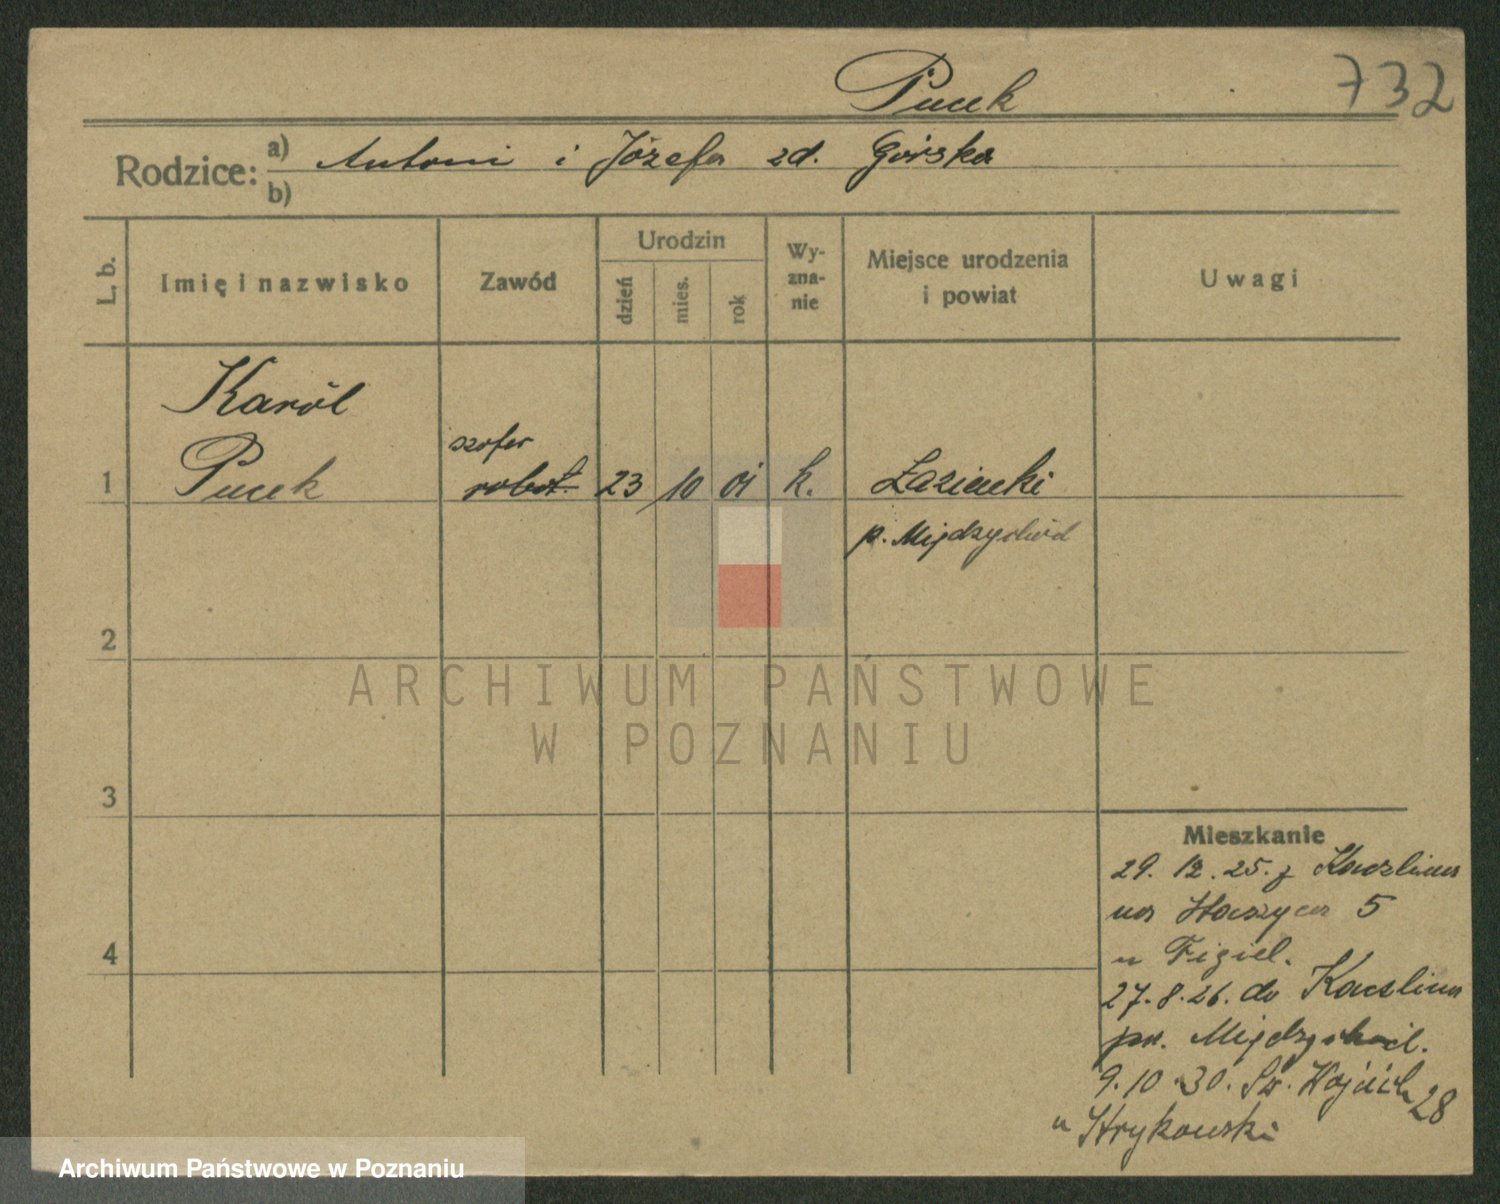 Pucek
732
Rodzice: a) Antoni i Józefa zd. Górska
b)
L. b. Imię i nazwisko Zawód Urodzin dzień mies. rok Wy-zna-nie Miejsce urodzenia i powiat Uwagi
Karól
szofer
1 Pucek robot. 23 10 01 k. Łaziaki
p. Międzychód
2
ARCHIWUM PAŃSTWOWE
W POZNANIU
3
Mieszkanie
29. 12. 25. z Kaczlina
na Staszyca 5
4
u Figiel.
27. 8. 26. do Kaczlina
pw. Międzychód.
9. 10. 30. Św. Wojciech 28
u Strykowski
Archiwum Państwowe w Poznaniu